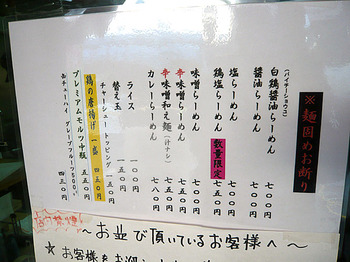 ※麺固めお断り
(パイチーショウユ)
白鶏醤油らーめん 七五〇
醤油らーめん 五〇〇
塩らーめん 五〇〇
鶏塩らーめん 数量限定 七五〇
味噌らーめん 七〇〇
辛味噌らーめん 七五〇
辛味噌和え麺(汁ナシ) 七八〇
カレーらーめん 七八〇
ライス 一〇〇
替え玉 一五〇
チャーシュートッピング 一五〇
鶏の唐揚げ 一盛 四五〇
プレミアムモルツ中瓶 五五〇
缶チューハイ グレープフルーツ500㎖ 四三〇
～お並び頂いているお客様へ～
★お客様をお